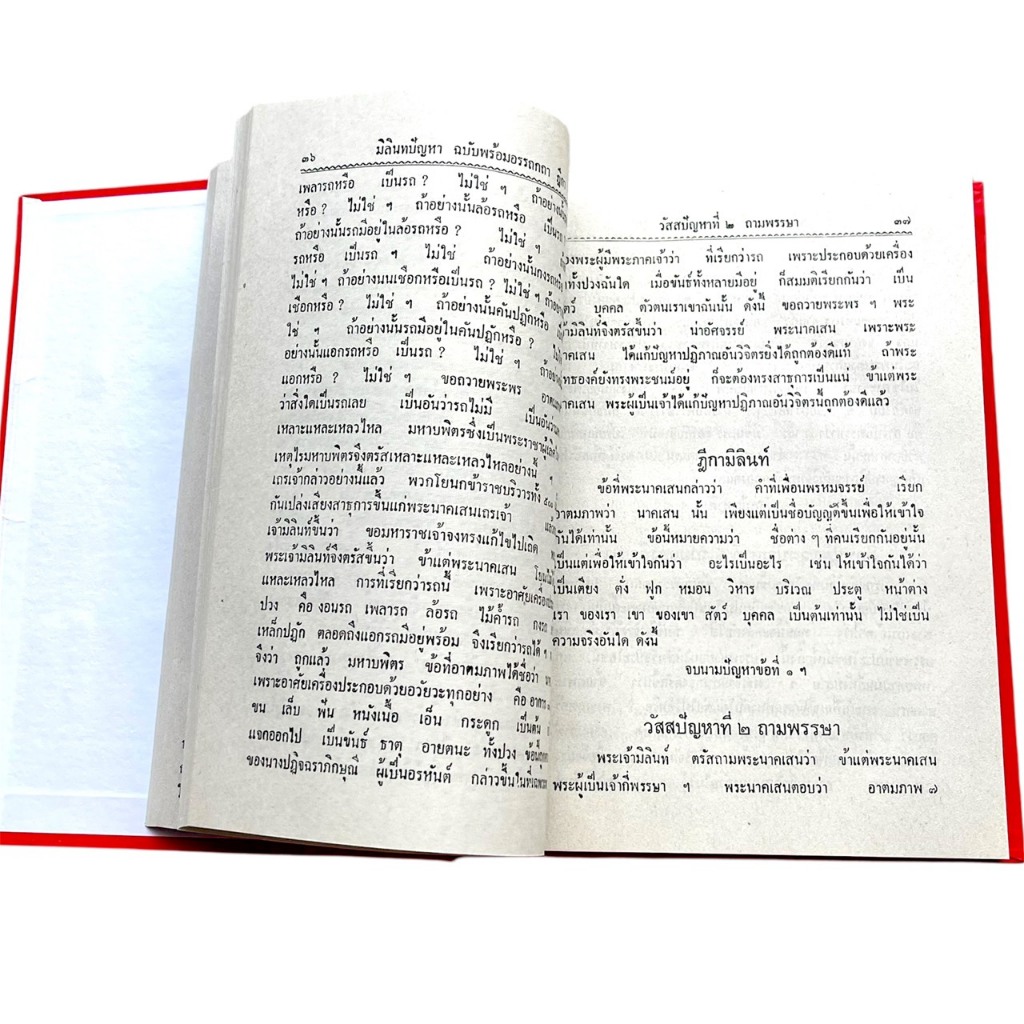 ๓๖ มิลินทปัญหา ฉบับพร้อมอรรถกถา ฎีกา
เพลารถหรือ เป็นรถ ? ไม่ใช่ ฯ ถ้าอย่าง
หรือ ? ไม่ใช่ ฯ ถ้าอย่างนั้นล้อรถหรือ เป็นรถ
ถ้าอย่างนั้นรถมีอยู่ในล้อรถหรือ ? ไม่ใช่ ฯ
รถหรือ เป็นรถ ฯ ไม่ใช่ ถ้าอย่างนั้นกงรถหรือ
ไม่ใช่ ฯ ถ้าอย่างนนเชือกหรือเป็นรถ ? ไม่ใช่ ฯ
เชือกหรือ ? ไม่ใช่ ฯ ถ้าอย่างนั้นคันปฏักหรือ
ใช่ ฯ ถ้าอย่างนั้นรถมีอยู่ในคันปฏักหรือ ?
อย่างนั้นแอกรถหรือ เป็นรถ ? ไม่ใช่ ฯ
แอกหรือ ? ไม่ใช่ ฯ ขอถวายพระพร
ว่าสิ่งใดเป็นรถเลย เป็นอันว่ารถไม่มี
เหลาะแหละเหลวไหล มหาบพิตรซึ่งเป็นพระราชา
เหตุไรมหาบพิตรจึงตรัสเหลาะแหละเหลวไหลอย่างนี้ ฯ
เถรเจ้ากล่าวอย่างนี้แล้ว พวกโยนกข้าราชบริวารทั้ง ๕๐๐
กันเปล่งเสียงสาธุการขึ้นแก่พระนาคเสนเถรเจ้า
เจ้ามิลินท์ขึ้นว่า ขอมหาราชเจ้าจงทรงแก้ไขไปเถิด
พระเจ้ามิลินท์จึงตรัสขึ้นว่า ข้าแต่พระนาคเสน
แหละเหลวไหล การที่เรียกว่ารถนี้ เพราะอาศัยเครื่อง
ปวง คือ งอนรถ เพลารถ ล้อรถ ไม้ค้ำรถ กงรถ
เหล็กปฏัก ตลอดถึงแอกรถมีอยู่พร้อม จึงเรียกว่ารถได้ ฯ
จึงว่า ถูกแล้ว มหาบพิตร ข้อที่อาตมภาพได้ชื่อว่า
เพราะอาศัยเครื่องประกอบด้วยอวัยวะทุกอย่าง คือ อาการ
ขน เล็บ ฟัน หนังเนื้อ เอ็น กระดูก เป็นต้น
แจกออกไป เป็นขันธ์ ธาตุ อายตนะ ทั้งปวง
ของนางปฏิจฉราภิกษุณี ผู้เป็นอรหันต์ กล่าวขึ้นในที่
วัสสปัญหาที่ ๒ ถามพรรษา ๓๗
ของพระผู้มีพระภาคเจ้าว่า ที่เรียกว่ารถ เพราะประกอบด้วยเครื่อง
ทั้งปวงฉันใด เมื่อขันธ์ทั้งหลายมีอยู่ ก็สมมติเรียกกันว่า เป็น
สัตว์ บุคคล ตัวตนเราเขาฉันนั้น ดังนี้ ขอถวายพระพร ฯ พระ
เจ้ามิลินท์จึงตรัสขึ้นว่า น่าอัศจรรย์ พระนาคเสน เพราะพระ
นาคเสน ได้แก้ปัญหาปฏิภาณอันวิจิตรยิ่งได้ถูกต้องดีแท้ ถ้าพระ
พุทธองค์ยังทรงพระชนม์อยู่ ก็จะต้องทรงสาธุการเป็นแน่ ข้าแต่พระ
นาคเสน พระผู้เป็นเจ้าได้แก้ปัญหาปฏิภาณอันวิจิตรนี้ถูกต้องดีแล้ว
ฎีกามิลินท์
ข้อที่พระนาคเสนกล่าวว่า คำที่เพื่อนพรหมจรรย์ เรียก
อาตมภาพว่า นาคเสน นั้น เพียงแต่เป็นชื่อบัญญัติขึ้นเพื่อให้เข้าใจ
กันได้เท่านั้น ข้อนี้หมายความว่า ชื่อต่าง ๆ ที่คนเรียกกันอยู่นั้น
เป็นแต่เพื่อให้เข้าใจกันว่า อะไรเป็นอะไร เช่น ให้เข้าใจกันได้ว่า
เป็นเตียง ตั่ง ฟูก หมอน วิหาร บริเวณ ประตู หน้าต่าง
เรา ของเรา เขา ของเขา สัตว์ บุคคล เป็นต้นเท่านั้น ไม่ใช่เป็น
ความจริงอันใด ดังนี้
จบนามปัญหาข้อที่ ๑ ฯ
วัสสปัญหาที่ ๒ ถามพรรษา
พระเจ้ามิลินท์ ตรัสถามพระนาคเสนว่า ข้าแต่พระนาคเสน
พระผู้เป็นเจ้ากี่พรรษา ฯ พระนาคเสนตอบว่า อาตมภาพ ๗